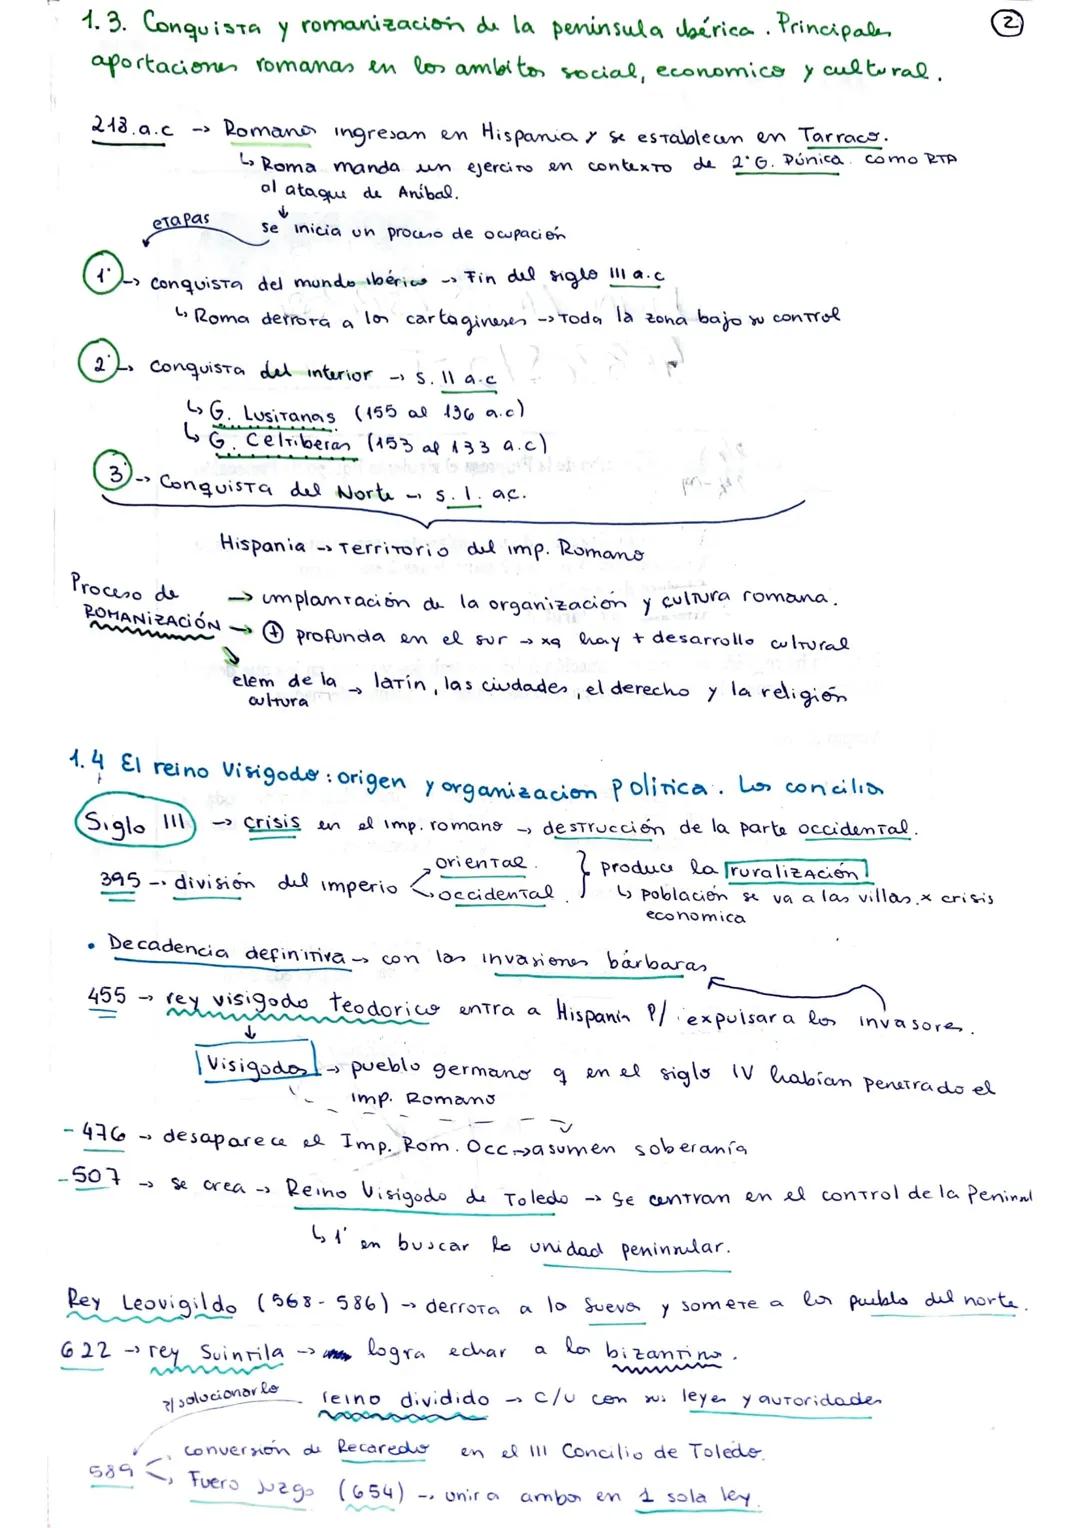 1.3. Conquista y romanización de la península ibérica. Principales
2
aportaciones romanas en los ambitos social, economico y cultural.
218.a.c → Romanos ingresan en Hispania y se establecen en Tarraco.
↳ Roma manda un ejercito en contexto de 2ª G. Púnica. como RTA
al ataque de Anibal.
↓
etapas
se inicia un proceso de ocupación
1ª → conquista del mundo ibérico → Fin del siglo III a.c
↳ Roma derrota a los cartagineses → Toda la zona bajo su control
2ª → conquista del interior → s. II a.c
↳ G. Lusitanas (155 al 136 a.c)
↳ G. Celtiberas (153 al 133 a.c)
3ª → Conquista del Norte → s. I. a.c.
Hispania → Territorio del imp. Romano
Proceso de
ROMANIZACIÓN
→ implantación de la organización y cultura romana.
→ + profunda en el sur → xq hay + desarrollo cultural
elem de la → latín, las ciudades, el derecho y la religión
cultura
1.4 El reino Visigodo: origen y organizacion Politica. Los concilios
Siglo III → crisis en el imp. romano → destrucción de la parte occidental.
395 → división del imperio
oriental.
occidental.
} produce la ruralización
↳ población se va a las villas x crisis
economica
• Decadencia definitiva → con las invasiones bárbaras
455 → rey visigodo teodorico entra a Hispania P/ expulsar a los invasores.
↓
Visigodos → pueblo germano q en el siglo IV habían penetrado el
imp. Romano
- 476 → desaparece el Imp. Rom. Occ → asumen soberanía
- 507 → se crea → Reino Visigodo de Toledo → Se centran en el control de la Peninsul
↳ 1º en buscar la unidad peninsular.
Rey Leovigildo (568-586) → derrota a lo Suevos y somete a los pueblo del norte.
622 → rey Suintila → logra echar a los bizantino.
P/ solucionarlo
reino dividido → c/u con sus leyes y autoridades
589
conversión de Recaredo en el III Concilio de Toledo.
Fuero Juzgo (654) → unir a ambos en 1 sola ley.